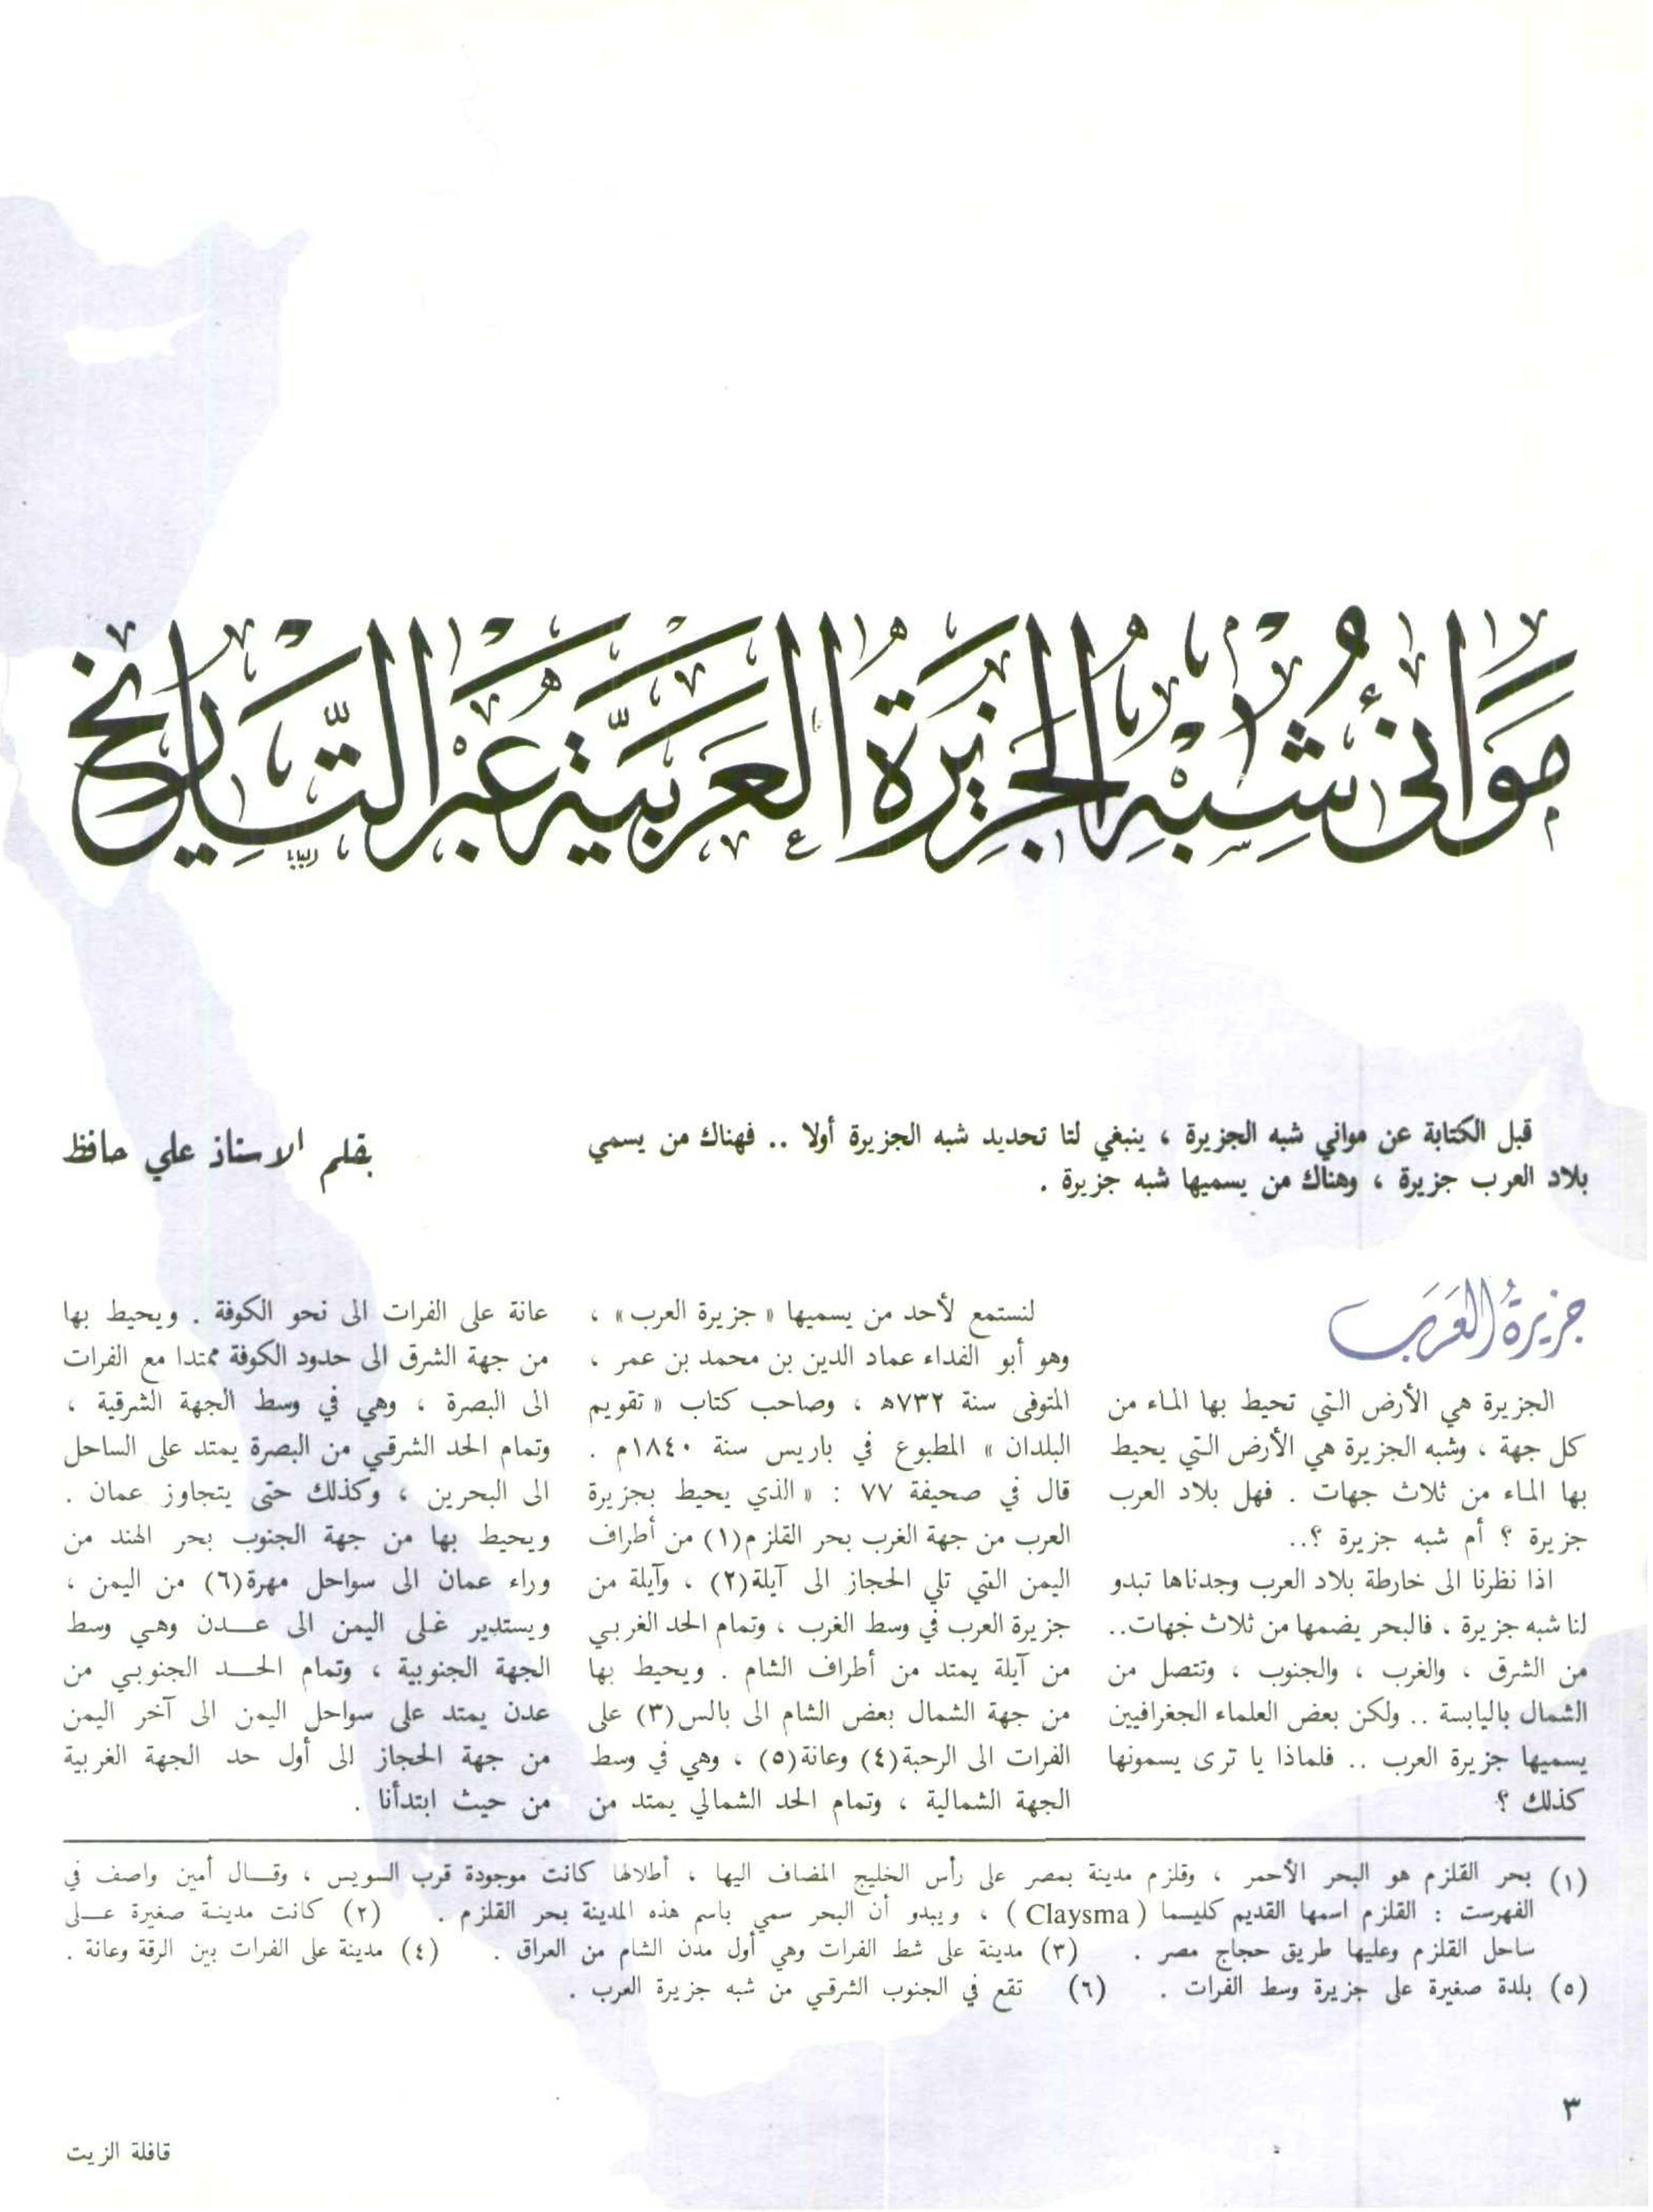 موانئ شبه الجزيرة العربية عبر التاريخ
قبل الكتابة عن مواني شبه الجزيرة ، ينبغي لنا تحديد شبه الجزيرة أولا .. فهناك من يسمي
بلاد العرب جزيرة ، وهناك من يسميها شبه جزيرة .
بقلم الاستاذ علي حافظ
جزيرة العرب
الجزيرة هي الأرض التي تحيط بها الماء من
كل جهة ، وشبه الجزيرة هي الأرض التي يحيط
بها الماء من ثلاث جهات . فهل بلاد العرب
جزيرة ؟ أم شبه جزيرة ؟..
اذا نظرنا الى خارطة بلاد العرب وجدناها تبدو
لنا شبه جزيرة ، فالبحر يضمها من ثلاث جهات..
من الشرق ، والغرب ، والجنوب ، وتتصل من
الشمال باليابسة .. ولكن بعض العلماء الجغرافيين
يسميها جزيرة العرب .. فلماذا يا ترى يسمونها
كذلك ؟
لنستمع لأحد من يسميها « جزيرة العرب» ،
وهو أبو الفداء عماد الدين بن محمد بن عمر ،
المتوفى سنة ٧٣٢ه ، وصاحب كتاب « تقويم
البلدان » المطبوع في باريس سنة ١٨٤٠م .
قال في صحيفة ٧٧ : « الذي يحيط بجزيرة
العرب من جهة الغرب بحر القلزم(١) من أطراف
اليمن التي تلي الحجاز الى آيلة(٢) ، وآيلة من
جزيرة العرب في وسط الغرب ، وتمام الحد الغربي
من آيلة يمتد من أطراف الشام . ويحيط بها
من جهة الشمال بعض الشام الى بالس(٣) على
الفرات الى الرحبة(٤) وعانة(٥) ، وهي في وسط
الجهة الشمالية ، وتمام الحد الشمالي يمتد من
عانة على الفرات الى نحو الكوفة . ويحيط بها
من جهة الشرق الى حدود الكوفة ممتدا مع الفرات
الى البصرة ، وهي في وسط الجهة الشرقية ،
وتمام الحد الشرقي من البصرة يمتد على الساحل
الى البحرين ، وكذلك حتى يتجاوز عمان .
ويحيط بها من جهة الجنوب بحر الهند من
وراء عمان الى سواحل مهرة(٦) من اليمن ،
ويستدير على اليمن الى عــدن وهي وسط
الجهة الجنوبية ، وتمام الحــد الجنوبي من
عدن يمتد على سواحل اليمن الى آخر اليمن
من جهة الحجاز الى أول حد الجهة الغربية
من حيث ابتدأنا .
(١) بحر القلزم هو البحر الأحمر ، وقلزم مدينة بمصر على رأس الخليج المضاف اليها ، أطلالها كانت موجودة قرب السويس ، وقــال أمين واصف في
الفهرست : القلزم اسمها القديم كليسما (Claysma) ، ويبدو أن البحر سمي باسم هذه المدينة بحر القلزم . (٢) كانت مدينة صغيرة عــلى
ساحل القلزم وعليها طريق حجاج مصر . (٣) مدينة على شط الفرات وهي أول مدن الشام من العراق . (٤) مدينة على الفرات بين الرقة وعانة .
(٥) بلدة صغيرة على جزيرة وسط الفرات . (٦) تقع في الجنوب الشرقي من شبه جزيرة العرب .
٣
قافلة الزيت